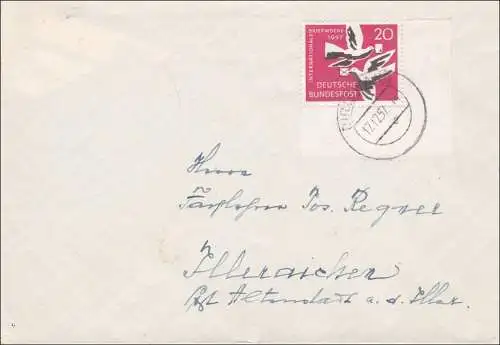 INTERNATIONALE
BRIEFWOCHE
1957
20
DEUTSCHE
BUNDESPOST
17.12.57
Herrn
Jos. Regner
Illeraichen
Altenstadt a. d. Iller.